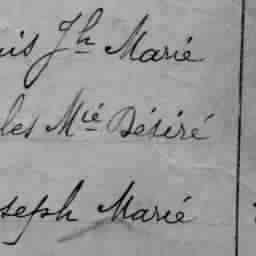 uis Jh Marié
les Mié Désiré
seph Marié